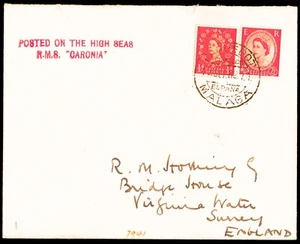 POSTED ON THE HIGH SEAS
R.M.S. "CARONIA"
E R
ESPAÑA
MALAGA
R. M.
Bridge House
Virginia Water
Surrey
ENGLAND